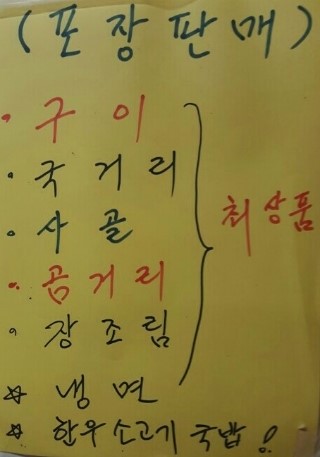 (포장판매)
· 구이
· 국거리
· 사골
· 곰거리
· 장조림
최상품
☆ 냉면
☆ 한우소고기 국밥!